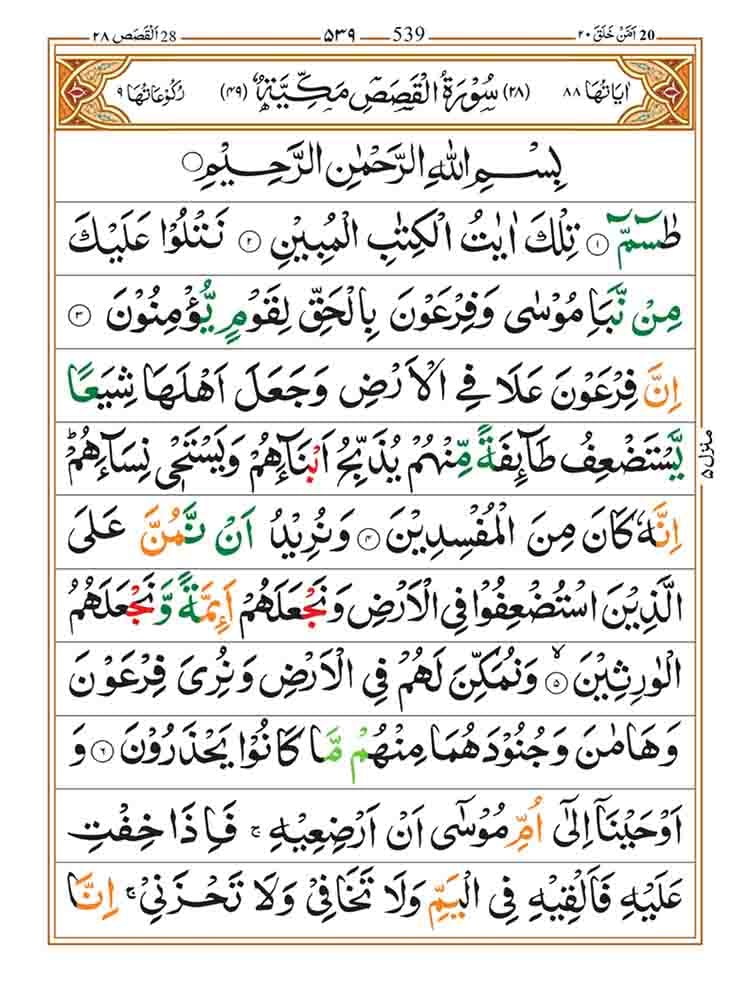 20 اَمَّنْ خَلَقَ ٢٠
539 ٥٣٩
28 اَلْقَصَص ٢٨
اٰيَاتُهَا ٨٨
(٢٨) سُوْرَةُ الْقَصَصِ مَكِّيَّةٌ (٤٩)
رُكُوْعَاتُهَا ٩
بِسْمِ اللّٰهِ الرَّحْمٰنِ الرَّحِيْمِ
طٰسٓمّٓ ١ تِلْكَ اٰيٰتُ الْكِتٰبِ الْمُبِيْنِ ٢ نَتْلُوْا عَلَيْكَ
مِنْ نَّبَاِ مُوْسٰى وَفِرْعَوْنَ بِالْحَقِّ لِقَوْمٍ يُّؤْمِنُوْنَ ٣
اِنَّ فِرْعَوْنَ عَلَا فِي الْاَرْضِ وَجَعَلَ اَهْلَهَا شِيَعًا
يَّسْتَضْعِفُ طَآئِفَةً مِّنْهُمْ يُذَبِّحُ اَبْنَآءَهُمْ وَيَسْتَحْيٖ نِسَآءَهُمْ ؕ
اِنَّهٗ كَانَ مِنَ الْمُفْسِدِيْنَ ٤ وَنُرِيْدُ اَنْ نَّمُنَّ عَلَى
الَّذِيْنَ اسْتُضْعِفُوْا فِي الْاَرْضِ وَنَجْعَلَهُمْ اَئِمَّةً وَّنَجْعَلَهُمُ
الْوٰرِثِيْنَ ۙ ٥ وَنُمَكِّنَ لَهُمْ فِي الْاَرْضِ وَنُرِيَ فِرْعَوْنَ
وَهَامٰنَ وَجُنُوْدَهُمَا مِنْهُمْ مَّا كَانُوْا يَحْذَرُوْنَ ٦ وَ
اَوْحَيْنَآ اِلٰٓى اُمِّ مُوْسٰٓى اَنْ اَرْضِعِيْهِ ۚ فَاِذَا خِفْتِ
عَلَيْهِ فَاَلْقِيْهِ فِي الْيَمِّ وَلَا تَخَافِيْ وَلَا تَحْزَنِيْ ۚ اِنَّا
منزل ٥